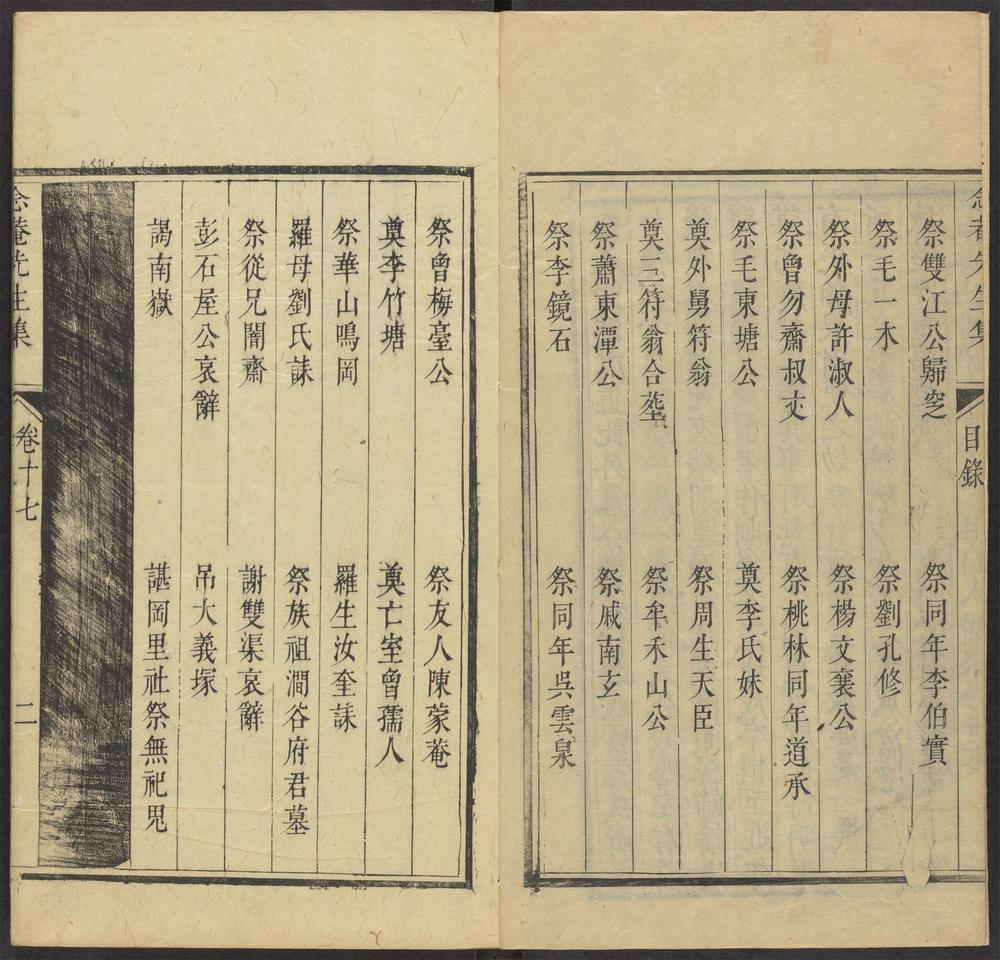 念菴先生集 目錄
祭雙江公歸窆 祭同年李伯實
祭毛一木 祭劉孔修
祭外母許淑人 祭楊文襄公
祭曾勿齋叔文 祭桃林同年道承
祭毛東塘公 奠李氏妹
奠外舅符翁 祭周生天臣
奠三符翁合塟 祭牟禾山公
祭蕭東潭公 祭戚南玄
祭李鏡石 祭同年吳雲泉
祭曾梅臺公 祭友人陳蒙菴
奠李竹塘 奠亡室曾孺人
祭華山鳴岡 羅生汝奎誄
羅母劉氏誄 祭族祖澗谷府君墓
祭從兄闇齋 謝雙渠哀辭
彭石屋公哀辭 吊大義塚
謁南嶽 諶岡里社祭無祀鬼
念菴先生集 卷十七 二